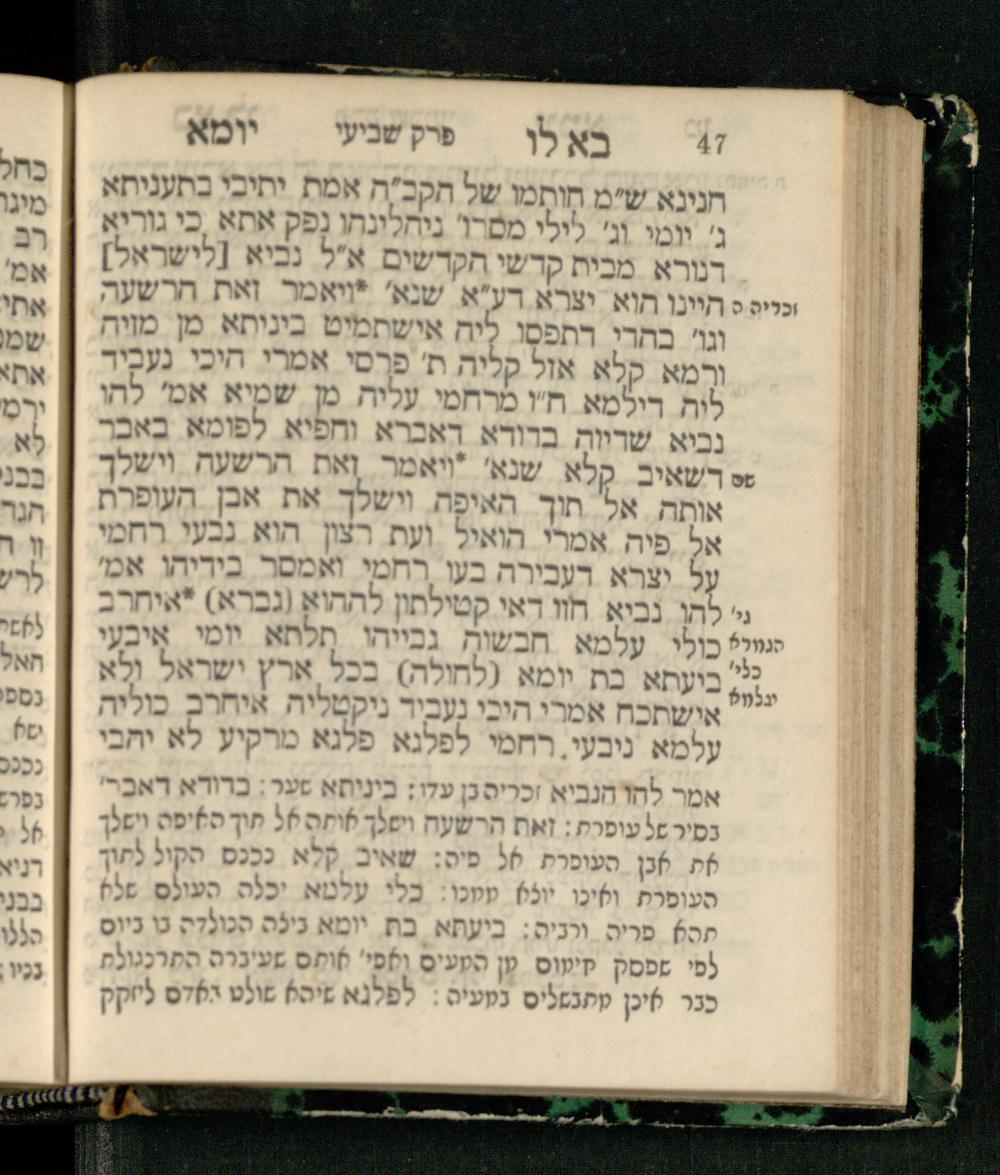 47 בא לו פרק שביעי יומא
חנינא ש״מ חותמו של הקב״ה אמת יתיבי בתעניתא
ג׳ יומי וג׳ לילי מסרו׳ ניהלינהו נפק אתא כי גוריא
דנורא מבית קדשי הקדשים א״ל נביא [לישראל]
זכריה ה היינו הוא יצרא דע״א שנא׳ *ויאמר זאת הרשעה
וגו׳ בהדי דתפסו ליה אישתמיט ביניתא מן מזיה
ורמא קלא אזל קליה ת׳ פרסי אמרי היכי נעביד
ליה דילמא ח״ו מרחמי עליה מן שמיא אמ׳ להו
נביא שדיוה בדודא דאברא וחפיא לפומא באבר
שם דשאיב קלא שנא׳ *ויאמר זאת הרשעה וישלך
אותה אל תוך האיפה וישלך את אבן העופרת
אל פיה אמרי הואיל ועת רצון הוא נבעי רחמי
על יצרא דעבירה בעו רחמי ואמסר בידיהו אמ׳
גי׳ להו נביא חזו דאי קטילתון לההוא (גברא) *איחרב
הגמרא כולי עלמא חבשוה גבייהו תלתא יומי איבעי
כלי׳ ביעתא בת יומא (לחולה) בכל ארץ ישראל ולא
עלמא אישתכח אמרי היכי נעביד ניקטליה איחרב כוליה
עלמא ניבעי רחמי לפלגא פלגא מרקיע לא יהבי
אמר להו הנביא זכריה בן עדו: ביניתא שער: בדודא דאבר׳
בסיר של עופרת: זאת הרשעה וישלך אותה אל תוך האיפה וישלך
את אבן העופרת אל פיה: שאיב קלא נכנס הקול לתוך
העופרת ואינו יוצא ממנו: כלי עלמא יכלה העולם שלא
תהא פריה ורביה: ביעתא בת יומא ביצה הנולדה בו ביום
לפי שפסק חימום מן המעים ואפי׳ אותם שעיברה התרנגולת
כבר אינן מתבשלים במעיה: לפלגא שיהא שולט באדם ליזקק